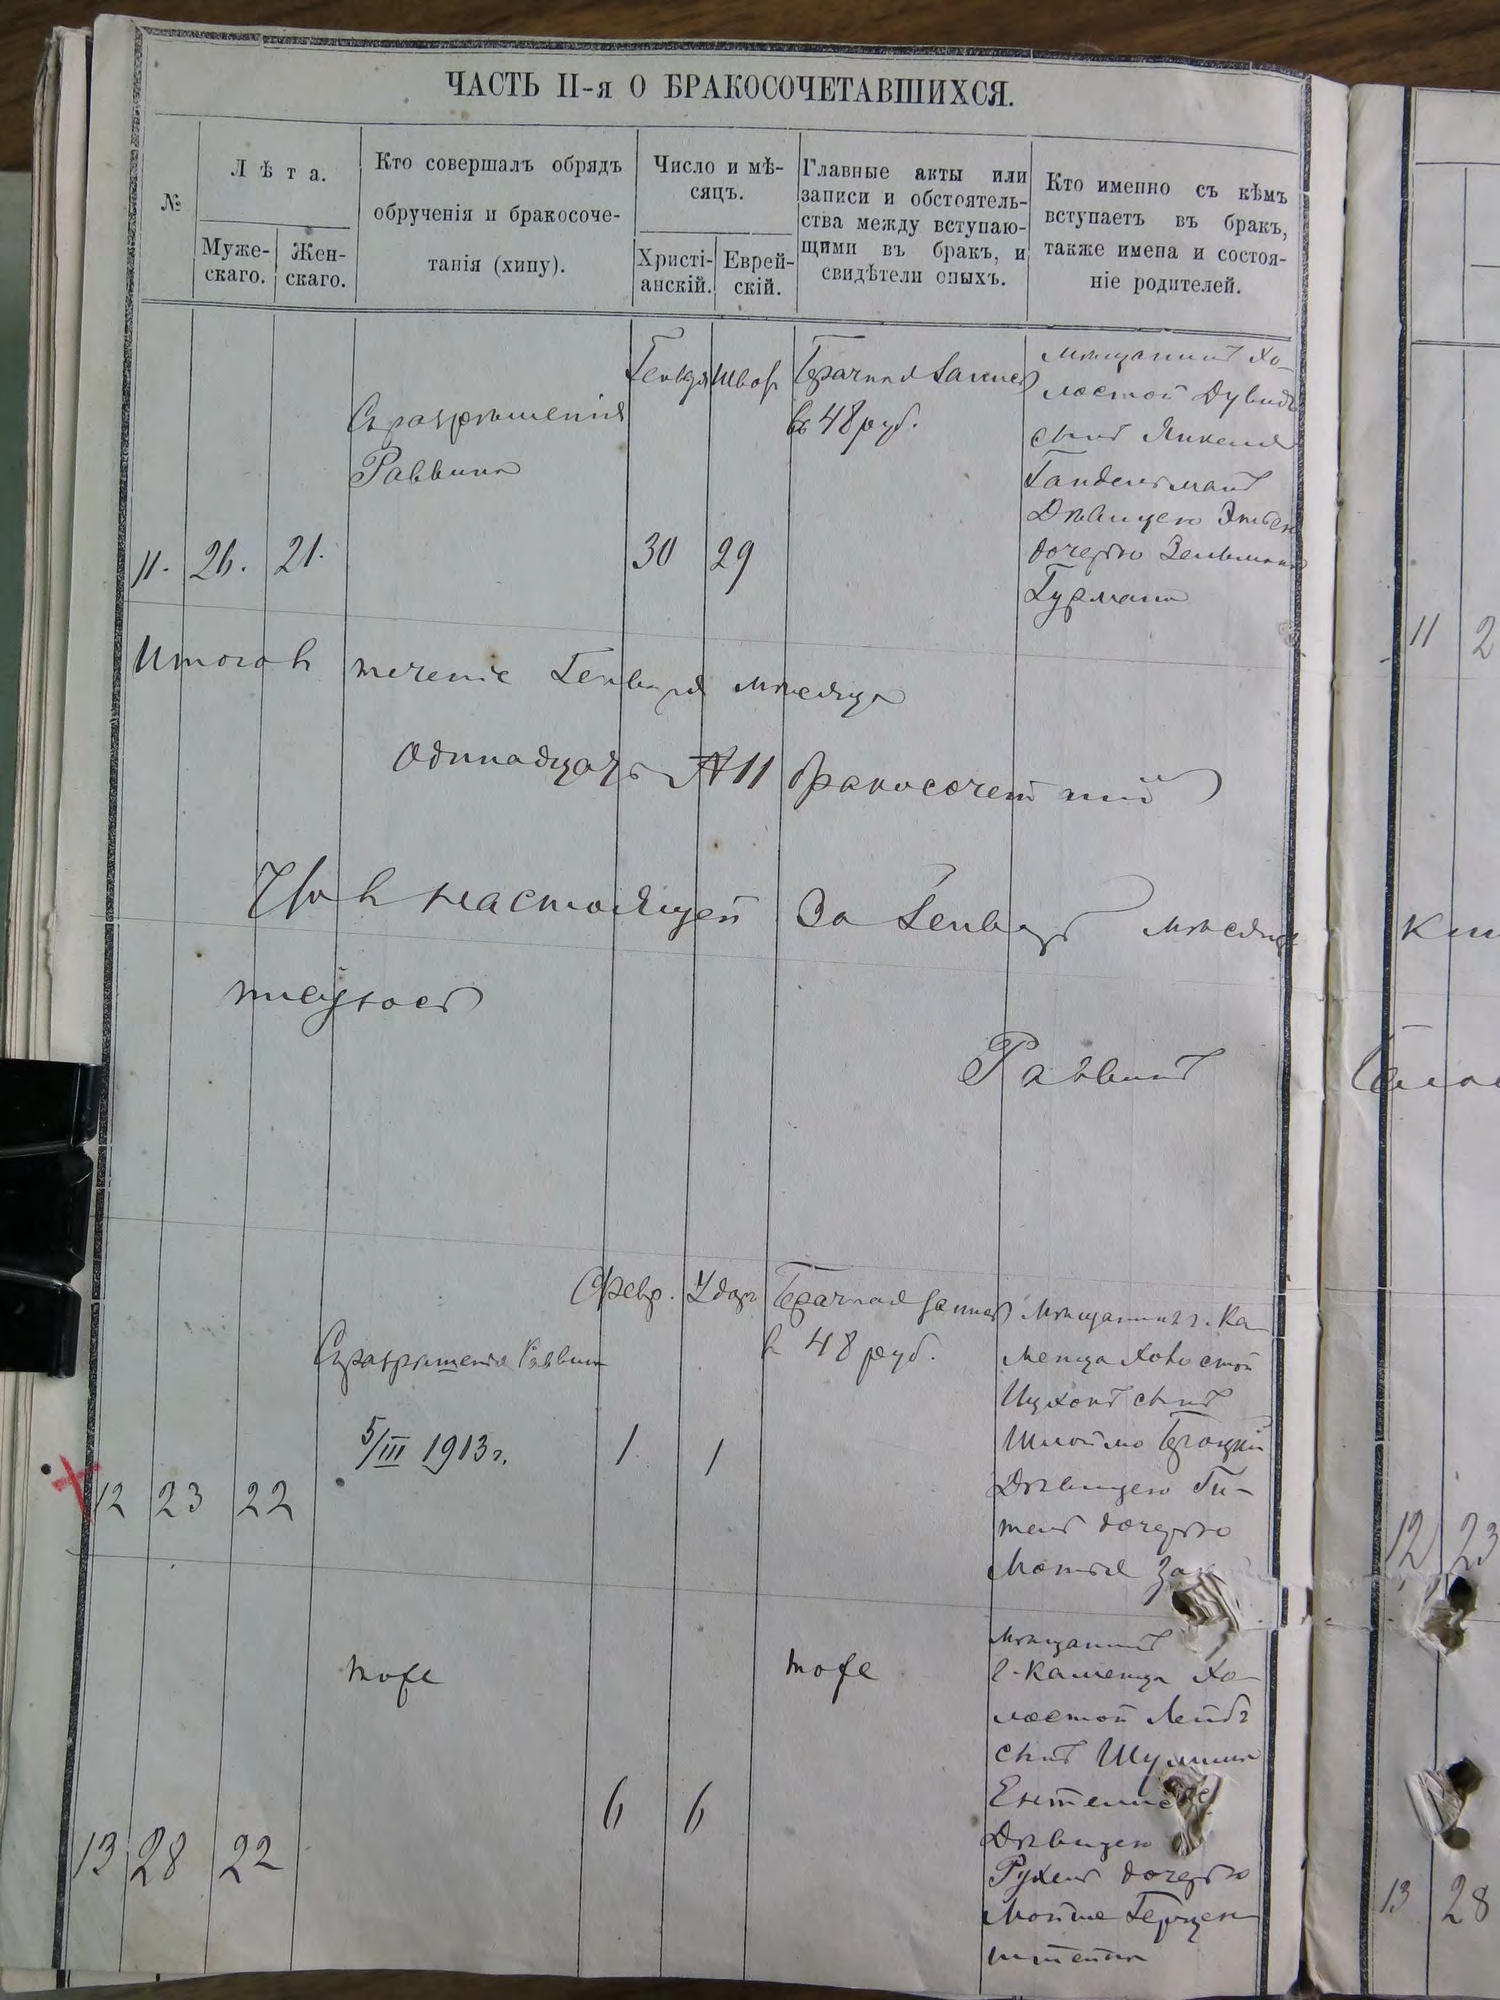 ЧАСТЬ II-я О БРАКОСОЧЕТАВШИХСЯ.
№
Лѣта.
Муже-
скаго.
Жен-
скаго.
Кто совершалъ обрядъ
обрученія и бракосоче-
танія (хипу).
Число и мѣ-
сяцъ.
Христі-
анскій.
Еврей-
скій.
Главные акты или
записи и обстоятель-
ства между вступаю-
щими въ бракъ, и
свидѣтели оныхъ.
Кто именно съ кѣмъ
вступаетъ въ бракъ,
также имена и состоя-
ніе родителей.
11.
26.
21.
Съ разрѣшенія
Раввина
Генваря
30
29
Брачная запись
въ 48 руб.
мѣщанинъ хо-
лостой Дувидъ
сынъ Янкеля
Гандельманъ
Дѣвицею
дочерью Зельмана
Гурмана
Итого въ теченіе Генваря мѣсяца
одинадцать № 11 бракосочетаній
Что въ настоящей за Генварь мѣсяцъ
Раввинъ
12
23
22
Съ разрѣшенія Раввина
5/III 1913 г.
Февр.
1
Удоръ
1
Брачная запись
въ 48 руб.
мѣщанинъ г. Ка-
менца холостой
Ицхокъ сынъ
Шлоймо Броцкій
Дѣвицею Ги-
тель дочерью
13
28
22
тоже
6
6
тоже
мѣщанинъ
г. Каменца хо-
лостой Лейбъ
сынъ
Дѣвицею
Рухель дочерью
Мойше Герцен-
штейна
11 2
12 23
13 28